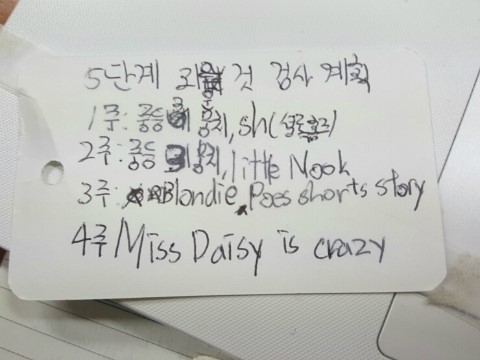 5단계 외울 것 검사 계획
1주: 중등 뭉치, sh(셜록홈즈)
2주: 중등 뭉치, little Nook
3주: Blondie, Poes shorts story
4주 Miss Daisy is crazy